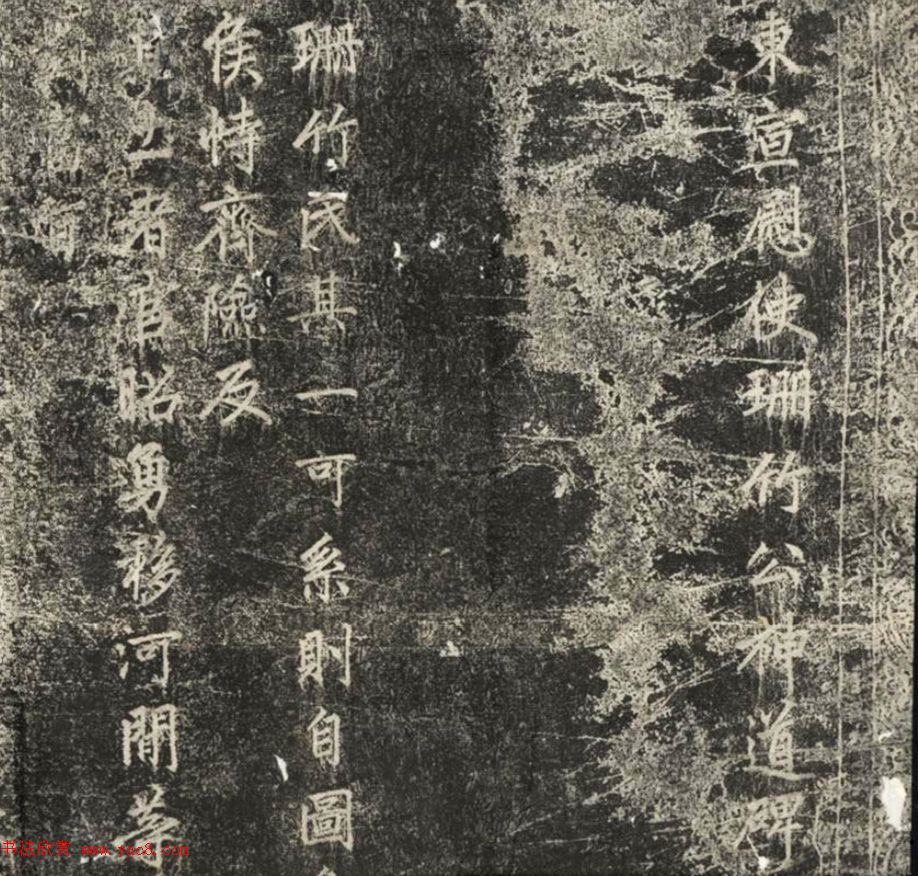 東宣慰使珊竹公神道碑
珊竹氏其一可系則自圖
侯恃齊險反
者 昭勇移河間等
书法欣赏 www.yac8.com